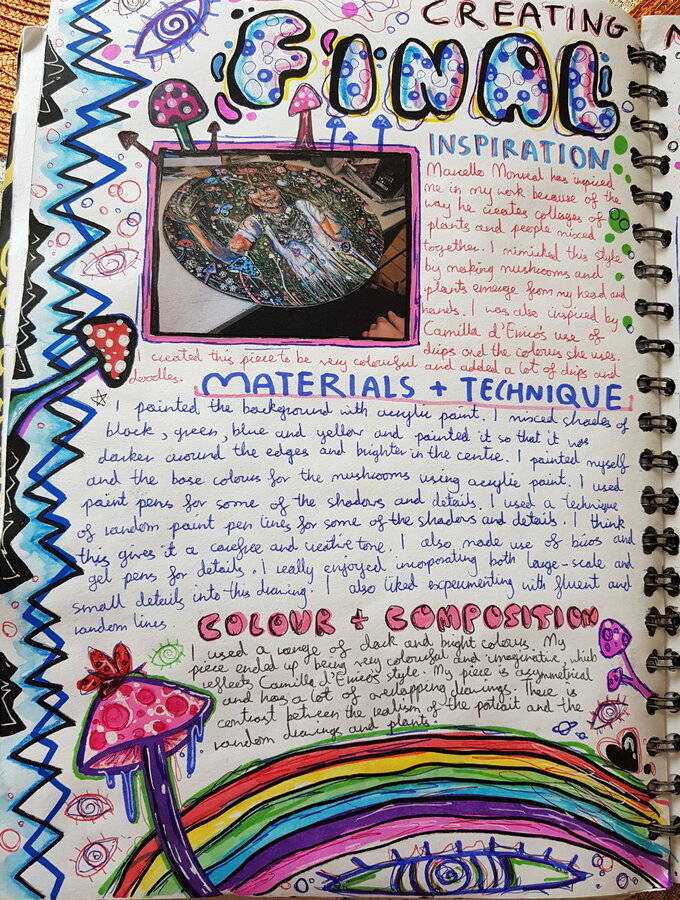 CREATING
FINAL
INSPIRATION
Marcello Monreal has inspired
me in my work because of the
way he creates collages of
plants and people mixed
together. I mimicked this style
by making mushrooms and
plants emerge from my head and
hands. I was also inspired by
Camilla d'Errico's use of
drips and the colours she uses.
I created this piece to be very colourful and added a lot of drips and
doodles.
MATERIALS + TECHNIQUE
I painted the background with acrylic paint. I mixed shades of
black, green, blue and yellow and painted it so that it was
darker around the edges and brighter in the centre. I painted myself
and the base colours for the mushrooms using acrylic paint. I used
paint pens for some of the shadows and details. I used a technique
of random paint pen lines for some of the shadows and details. I think
this gives it a carefree and creative tone. I also made use of biros and
gel pens for details. I really enjoyed incorporating both large-scale and
small details into this drawing. I also liked experimenting with fluent and
random lines.
COLOUR + COMPOSITION
I used a range of dark and bright colours. My
piece ended up being very colourful and imaginative, which
reflects Camilla d'Errico's style. My piece is asymmetrical
and has a lot of overlapping drawings. There is
contrast between the realism of the potrait and the
random drawings and plants.